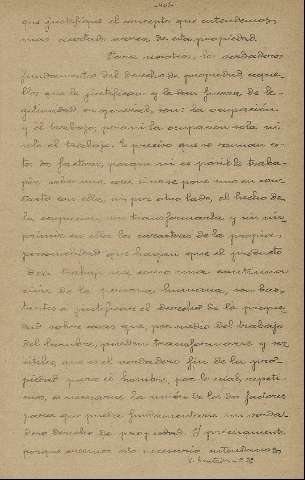 que justifique el concepto que entendemos
mas acertado acerca de esta propiedad.
Para nosotros, los verdaderos
fundamentos del derecho de propiedad aque-
llos que la justifican y la dan fuerza de le-
gitimidad en general, son: la ocupación
y el trabajo, pero ni la ocupacion sola ni
solo el trabajo. Es preciso que se reunan es-
tos dos factores, porque ni es posible traba-
jar sobre una cosa si no se pone uno en con-
tacto con ella, ni por otro lado, el hecho de
la ocupacion sin transformarla y sin im-
primir en ella los caracteres de la propia
personalidad que hagan que el producto
del trabajo sea como una continua-
cion de la persona humana, son bas-
tantes a justificar el derecho de la propie-
dad sobre cosas que, por medio del trabajo
del hombre, pueden transformarse y ser
útiles, que es el verdadero fin de la pro-
piedad para el hombre, por lo cual, repeti-
mos, es necesaria la unión de los dos factores
para que pueda fundamentarse un verda-
dero derecho de propiedad. Y precisamente
porque creemos esto necesario entendemos